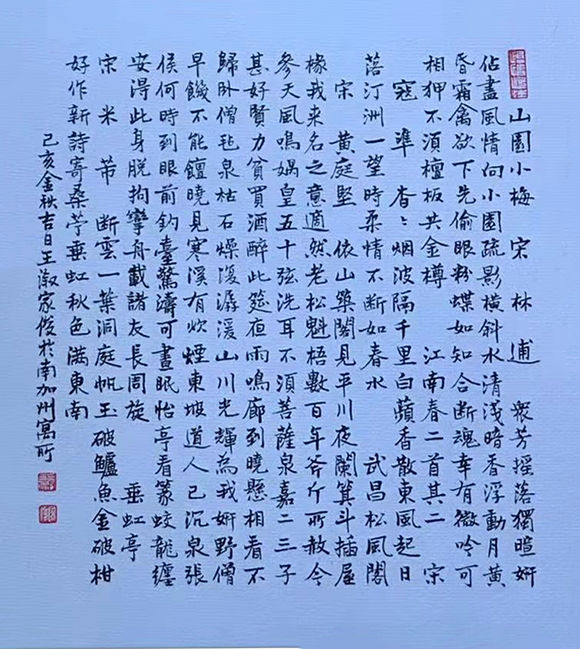 山園小梅 宋 林逋 衆芳摇落獨暄妍
佔盡風情向小園疏影橫斜水清淺暗香浮動月黃
昏霜禽欲下先偷眼粉蝶如知合断魂幸有微吟可
相狎不湏檀板共金樽 江南春二首其二 宋
寇準 杳〻烟波隔千里白蘋香散東風起日
落汀洲一望時柔情不断如春水 武昌松風閣
宋 黃庭堅 依山築閣見平川夜闌箕斗插屋
椽我来名之意適然老松魁梧數百年斧斤所赦今
參天風鳴媧皇五十弦洗耳不須菩薩泉嘉二三子
甚好賢力貧買酒醉此筵夜雨鳴廊到曉懸相看不
歸卧僧毡泉枯石燥復潺湲山川光輝為我妍野僧
早饑不能饘曉見寒溪有炊煙東坡道人已沉泉張
侯何時到眼前釣臺驚濤可晝眠怡亭看篆蛟龍纏
安得此身脱拘攣舟載諸友長周旋 垂虹亭
宋 米芾 断雲一葉洞庭帆玉破鱸魚金破柑
好作新詩寄桑苧垂虹秋色滿東南
己亥金秋吉日王淑家俊於南加州寓所